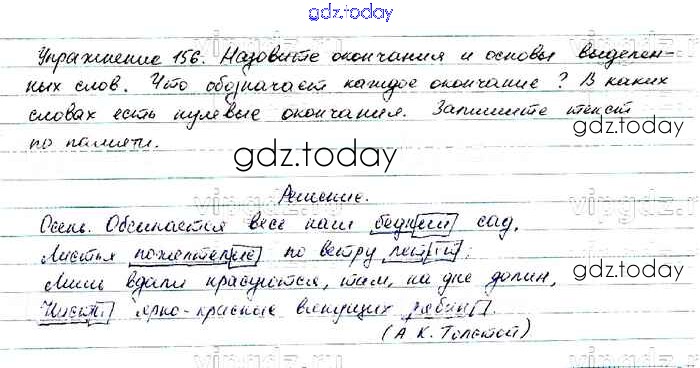 gdz.today
Упражнение 156. Назовите окончания и основы выделен-
ных слов. Что обозначает каждое окончание? В каких
словах есть нулевые окончания. Запишите текст
по памяти.
gdz.today
gdz.today
Решение.
Осень. Обсыпается весь наш бедный сад,
Листья пожелтелые по ветру летят;
Лишь вдали красуются, там, на дне долин,
Кисти ярко-красные вянущих рябин.
(А К. Толстой)
gdz.today
gdz.today